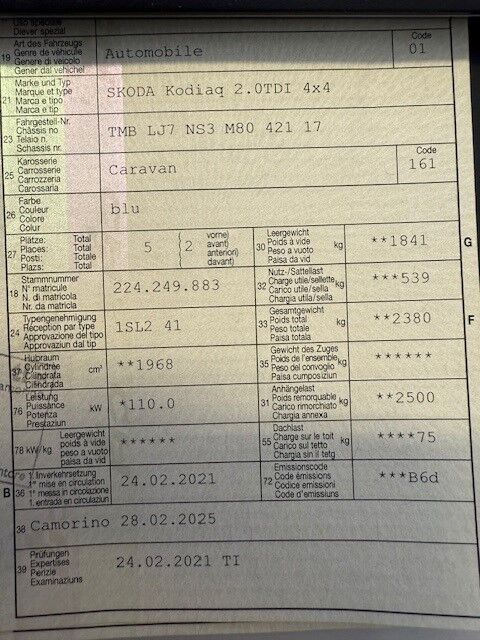 Uso speciale
Diever spezial
19 Art des Fahrzeugs
Genre de véhicule
Genere di veicolo
Gener dal vehichel
Automobile
Code
01
21 Marke und Typ
Marque et type
Marca e tipo
Marca e tip
SKODA Kodiaq 2.0TDI 4x4
23 Fahrgestell-Nr.
Châssis no
Telaio n.
Schassis nr.
TMB LJ7 NS3 M80 421 17
25 Karosserie
Carrosserie
Carrozzeria
Carossaria
Caravan
Code
161
26 Farbe
Couleur
Colore
Colur
blu
27 Plätze: Total
Places: Total
Posti: Totale
Plazs: Total
5
{ 2
vorne)
avant)
anteriori)
davant)
30 Leergewicht
Poids à vide kg
Peso a vuoto
Paisa da vid
**1841
G
18 Stammnummer
N° matricule
N. di matricola
Nr. da matricla
224.249.883
32 Nutz-/Sattellast
Charge utile/sellette kg
Carico utile/sella
Chargia utila/sella
***539
24 Typengenehmigung
Réception par type
Approvazione del tipo
Approvaziun dal tip
1SL2 41
33 Gesamtgewicht
Poids total kg
Peso totale
Paisa totala
**2380
F
37 Hubraum
Cylindrée cm³
Cilindrata
Cilindrada
**1968
35 Gewicht des Zuges
Poids de l'ensemble kg
Peso del convoglio
Paisa cumposiziun
******
76 Leistung
Puissance kW
Potenza
Prestaziun
*110.0
31 Anhängelast
Poids remorquable kg
Carico rimorchiato
Chargia annexa
**2500
78 kW/kg Leergewicht
poids à vide
peso a vuoto
paisa da vid
******
55 Dachlast
Charge sur le toit kg
Carico sul tetto
Chargia sin il tetg
****75
B
36 1. Inverkehrsetzung
1re mise en circulation
1a messa in circolazione
1. entrada en circulaziun
24.02.2021
72 Emissionscode
Code émissions
Codice emissioni
Code d'emissiuns
***B6d
38 Camorino 28.02.2025
39 Prüfungen
Expertises
Perizie
Examinaziuns
24.02.2021 TI